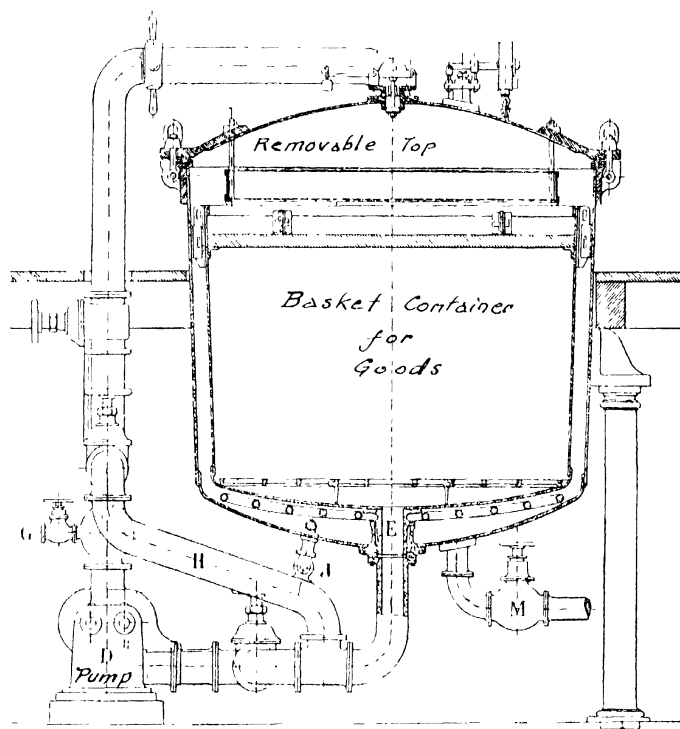 Removable Top
Basket Container
for
Goods
E
G
H
J
M
D
Pump